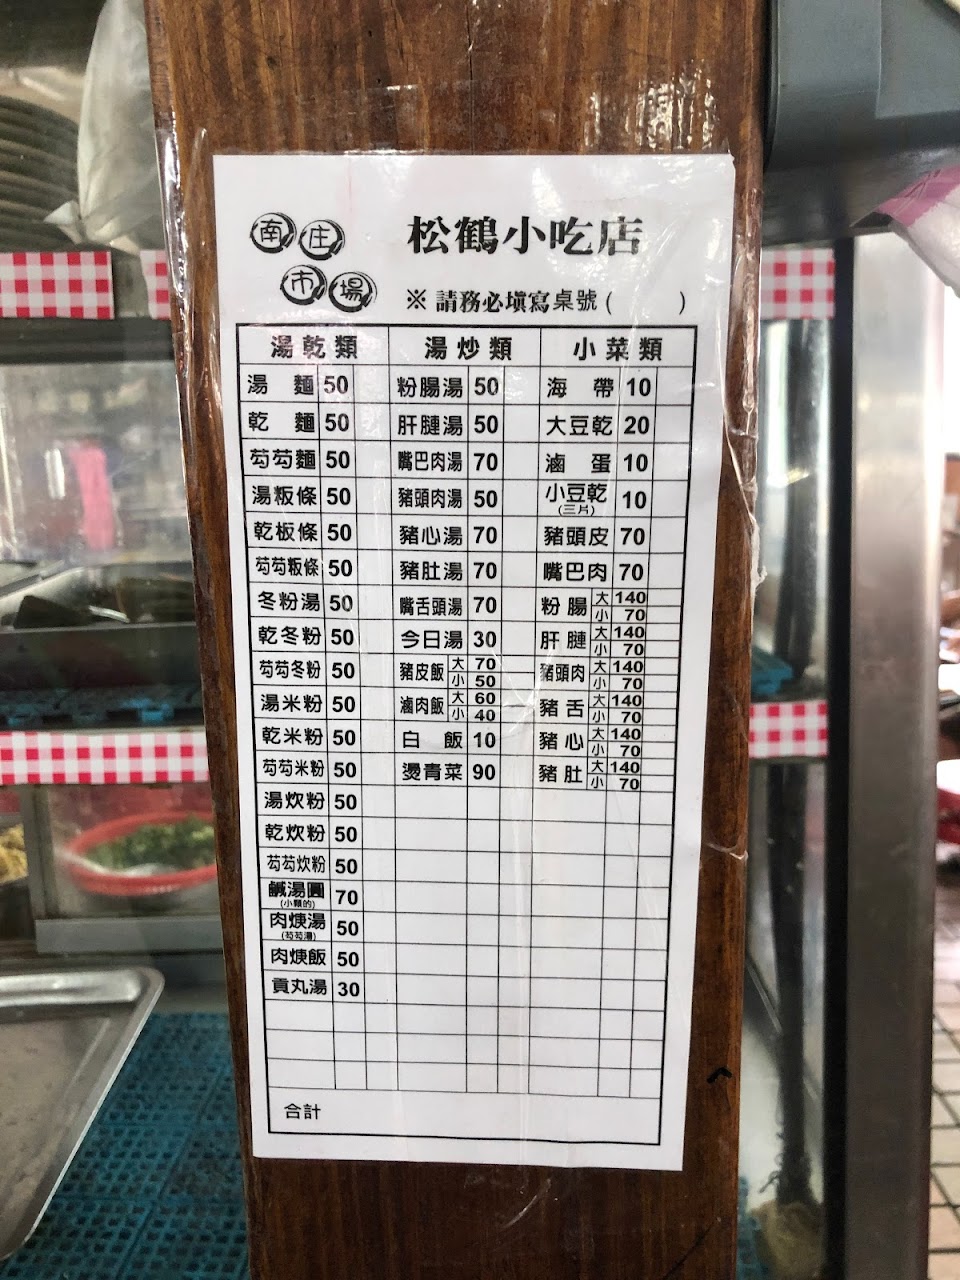 南庄
市場
松鶴小吃店
※ 請務必填寫桌號 ( )
湯乾類 湯炒類 小菜類
湯麵 50 粉腸湯 50 海帶 10
乾麵 50 肝腱湯 50 大豆乾 20
芶芶麵 50 嘴巴肉湯 70 滷蛋 10
湯粄條 50 豬頭肉湯 50 小豆乾(三片) 10
乾板條 50 豬心湯 70 豬頭皮 70
芶芶粄條 50 豬肚湯 70 嘴巴肉 70
冬粉湯 50 嘴舌頭湯 70 粉腸 大 140 小 70
乾冬粉 50 今日湯 30 肝腱 大 140 小 70
芶芶冬粉 50 豬皮飯 大 70 小 50 豬頭肉 大 140 小 70
湯米粉 50 滷肉飯 大 60 小 40 豬舌 大 140 小 70
乾米粉 50 白飯 10 豬心 大 140 小 70
芶芶米粉 50 燙青菜 90 豬肚 大 140 小 70
湯炊粉 50
乾炊粉 50
芶芶炊粉 50
鹹湯圓(小顆的) 70
肉焿湯(芶芶湯) 50
肉焿飯 50
貢丸湯 30
合計